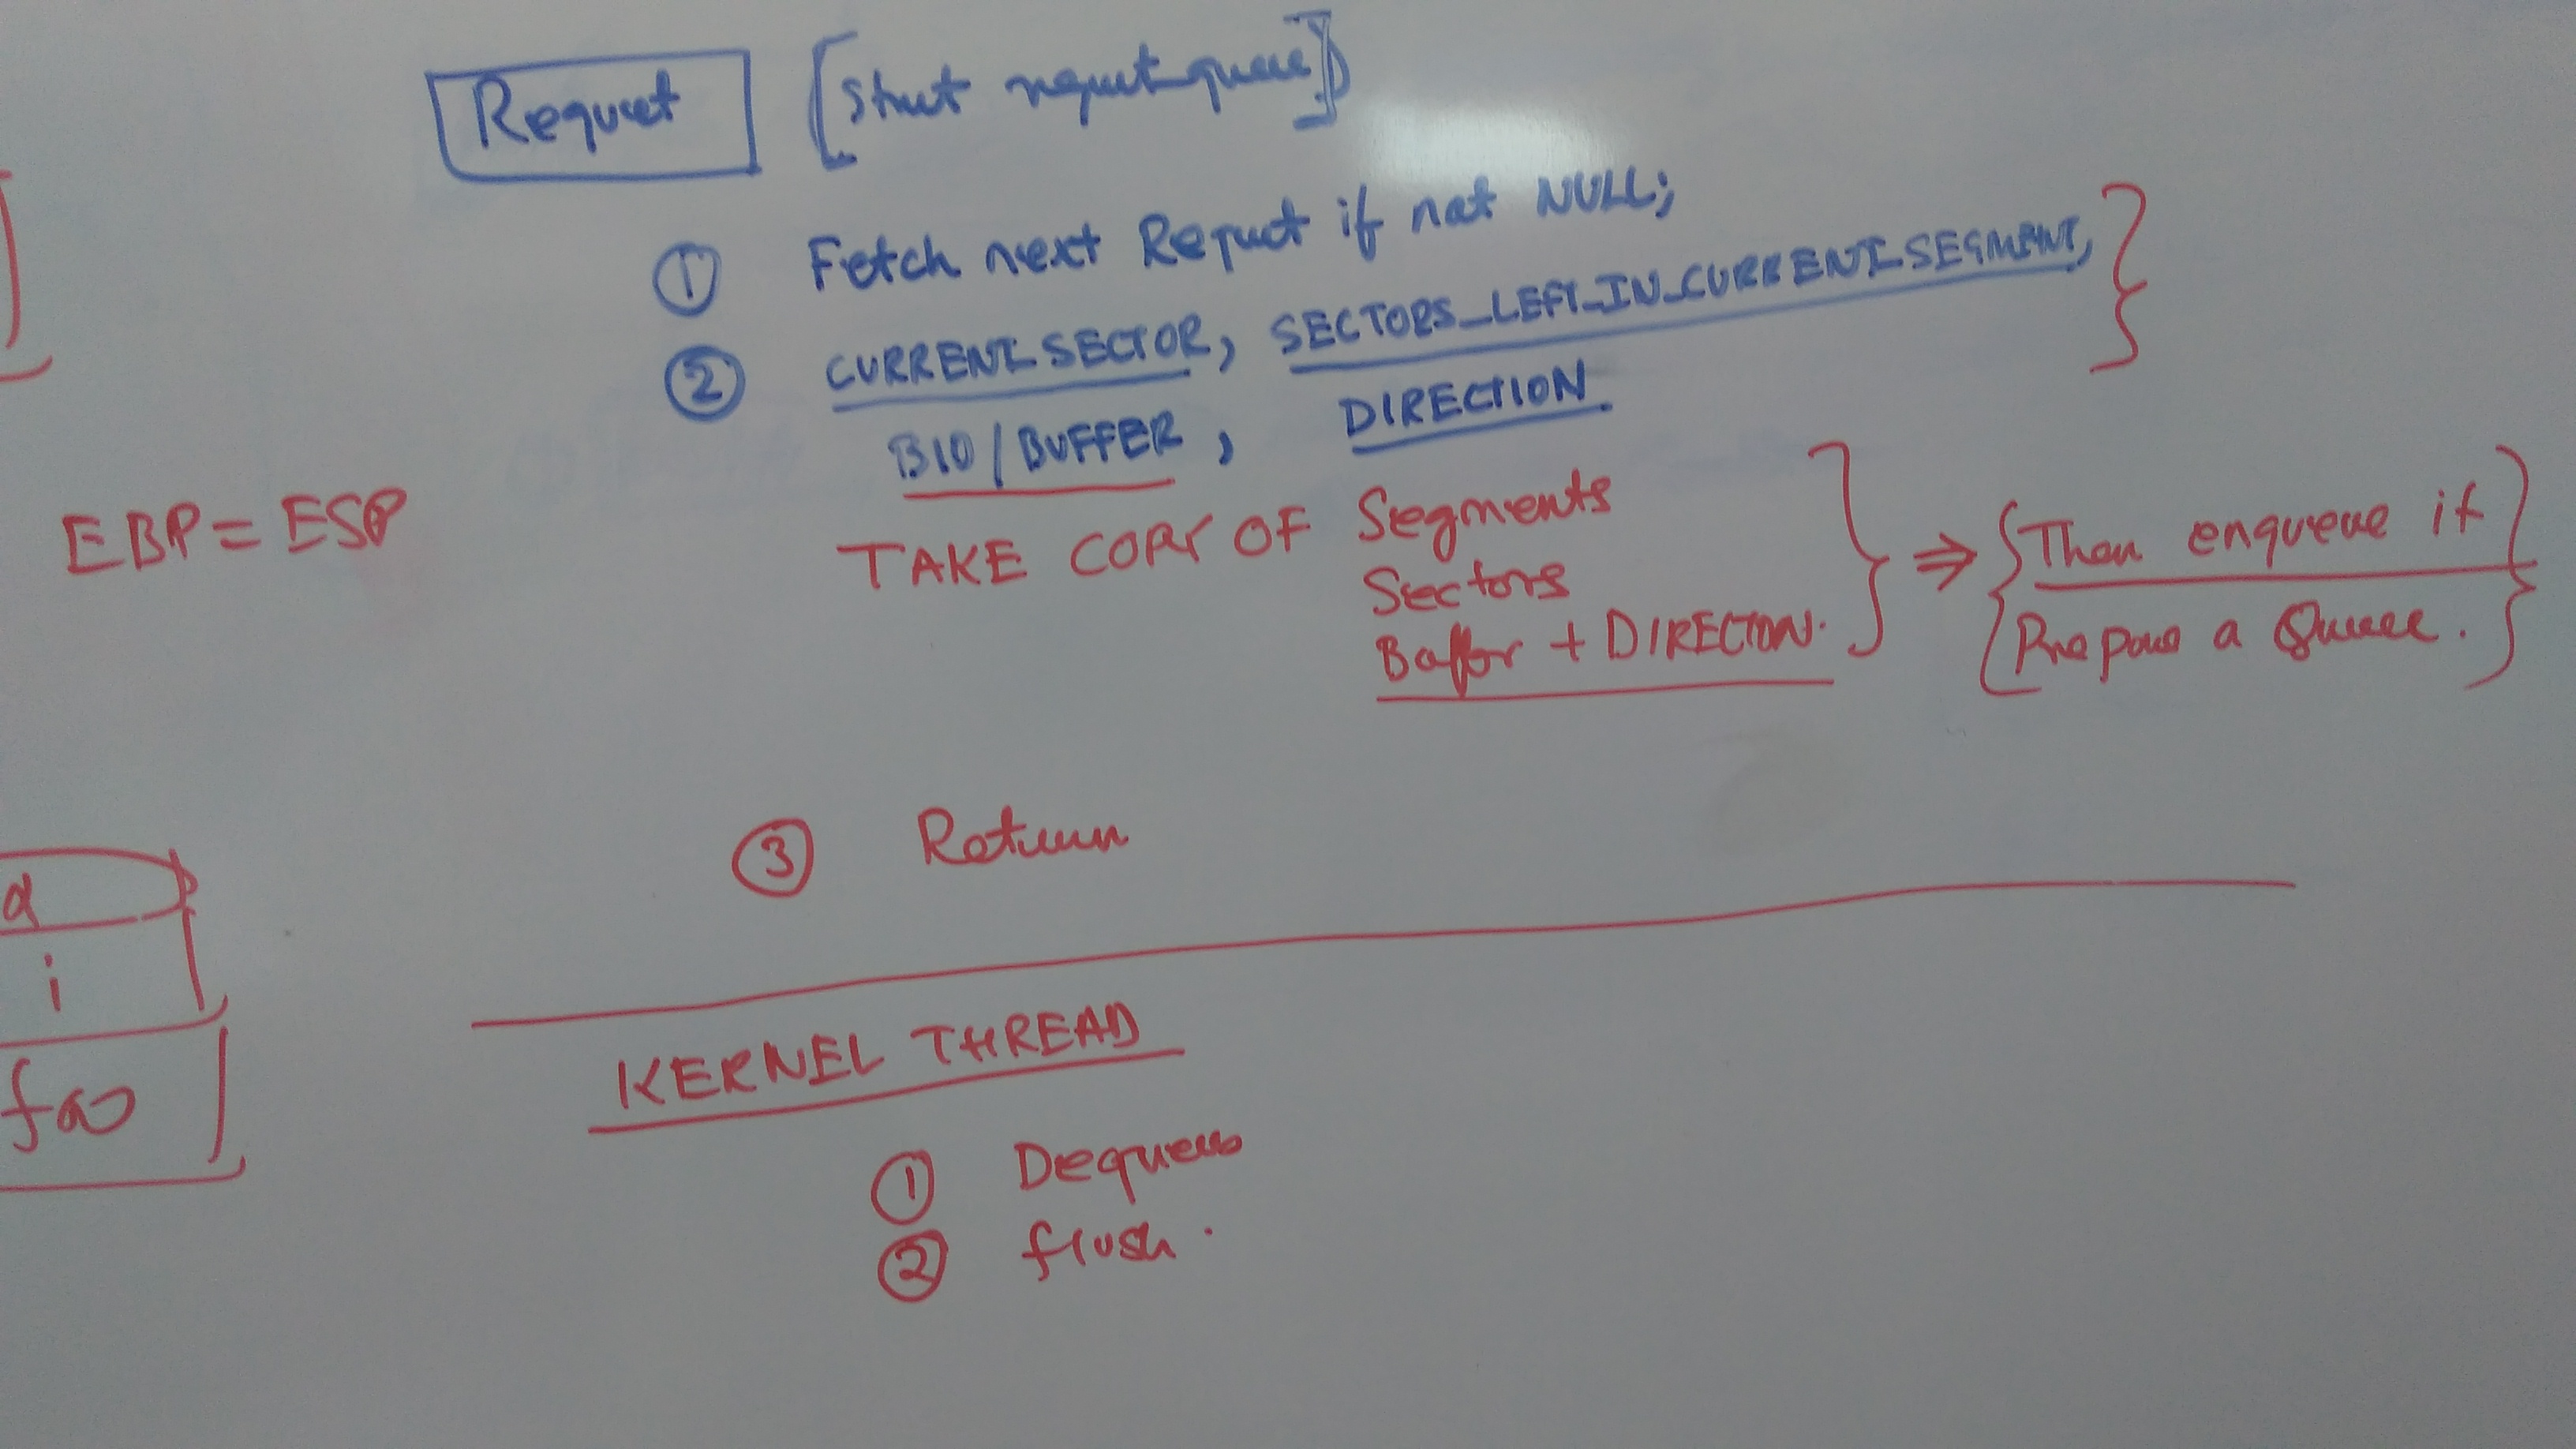 Request [struct request-queue]
① Fetch next Request if not NULL;
② CURRENT_SECTOR, SECTORS_LEFT_IN_CURRENT_SEGMENT,
BIO/BUFFER, DIRECTION.
EBP = ESP
TAKE COPY OF Segments
Sectors
Buffer + DIRECTION.
⇒ {Then enqueue it}
{Prepare a Queue.}
③ Return
d
i
foo
KERNEL THREAD
① Dequeue
② flush.